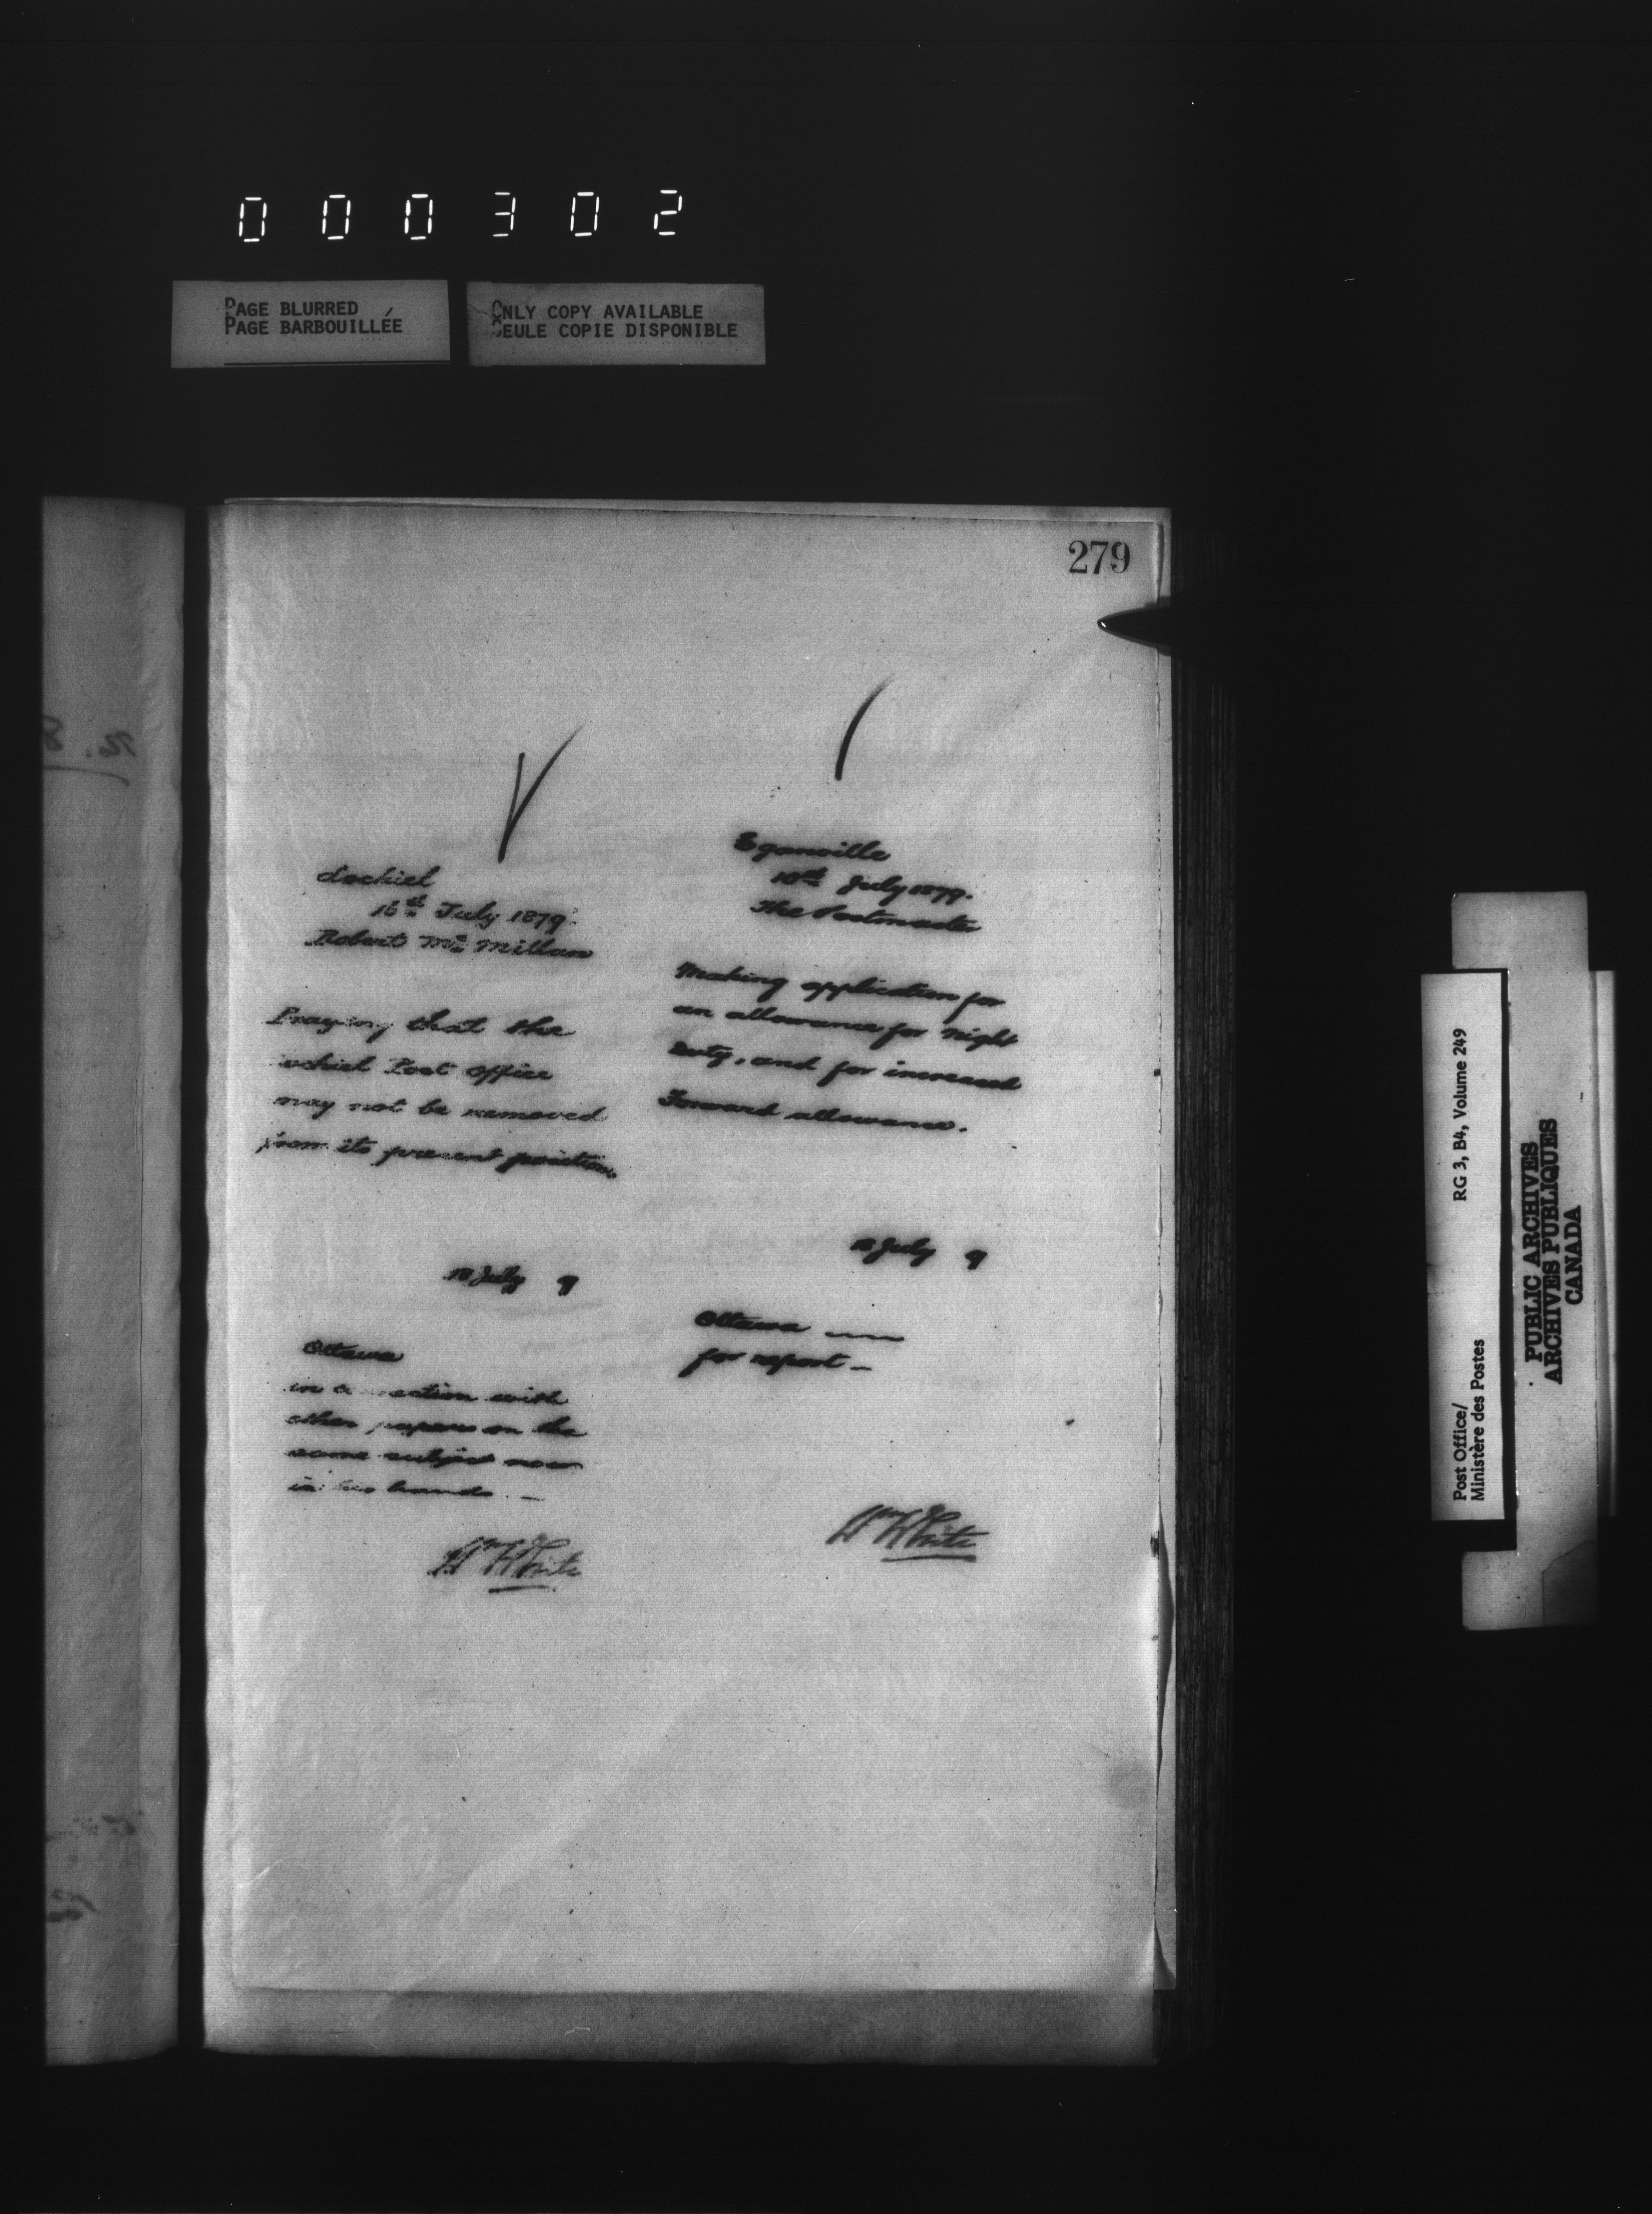 000302
PAGE BLURRED
PAGE BARBOUILLÉE
ONLY COPY AVAILABLE
SEULE COPIE DISPONIBLE
279
Lochiel
16th July 1879.
Robert Mc Millan
Praying that the
ochiel Post Office
may not be removed
from its present position.
18 July 9
Ottawa
in connection with
other papers on the
same subject now
in his hands. —
Wm White
Eganville
10th July 1879.
The Postmaster
Making application for
an allowance for Night
duty, and for increased
Forward allowance.
18 July 9
Ottawa —
for report —
Wm White
Post Office/
Ministère des Postes
RG 3, B4, Volume 249
PUBLIC ARCHIVES
ARCHIVES PUBLIQUES
CANADA